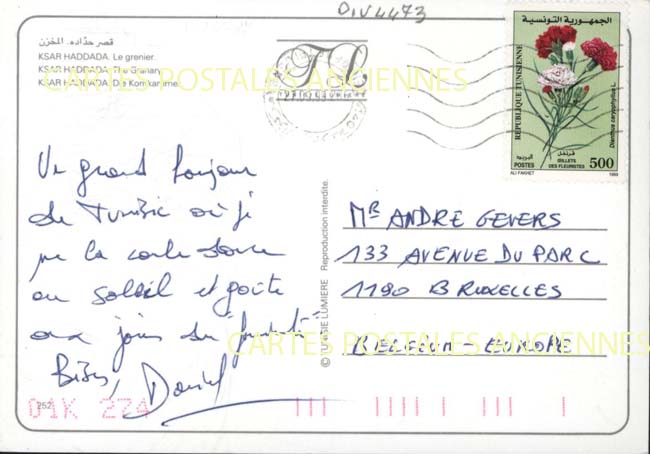 DIV4473
قصر حدّاده. المخزن
KSAR HADDADA. Le grenier.
KSAR HADDADA. The Granary.
KSAR HADDADA. Die Kornkammer.
CARTES POSTALES ANCIENNES
الجمهورية التونسية
REPUBLIQUE TUNISIENNE
Dianthus caryophyllus L.
قرنفل
البريد
POSTES
ŒILLETS
DES FLEURISTES
500
ALI FAKHET
Un grand bonjour
de Tunisie où je
me la coule douce
au soleil et goûte
aux joies du
Bises, Daniel
© TUNISIE LUMIERE Reproduction interdite.
MR ANDRE GEVERS
133 AVENUE DU PARC
1190 BRUXELLES
BELGIUM - EUROPE
CARTES POSTALES ANCIENNES
252
01K 274